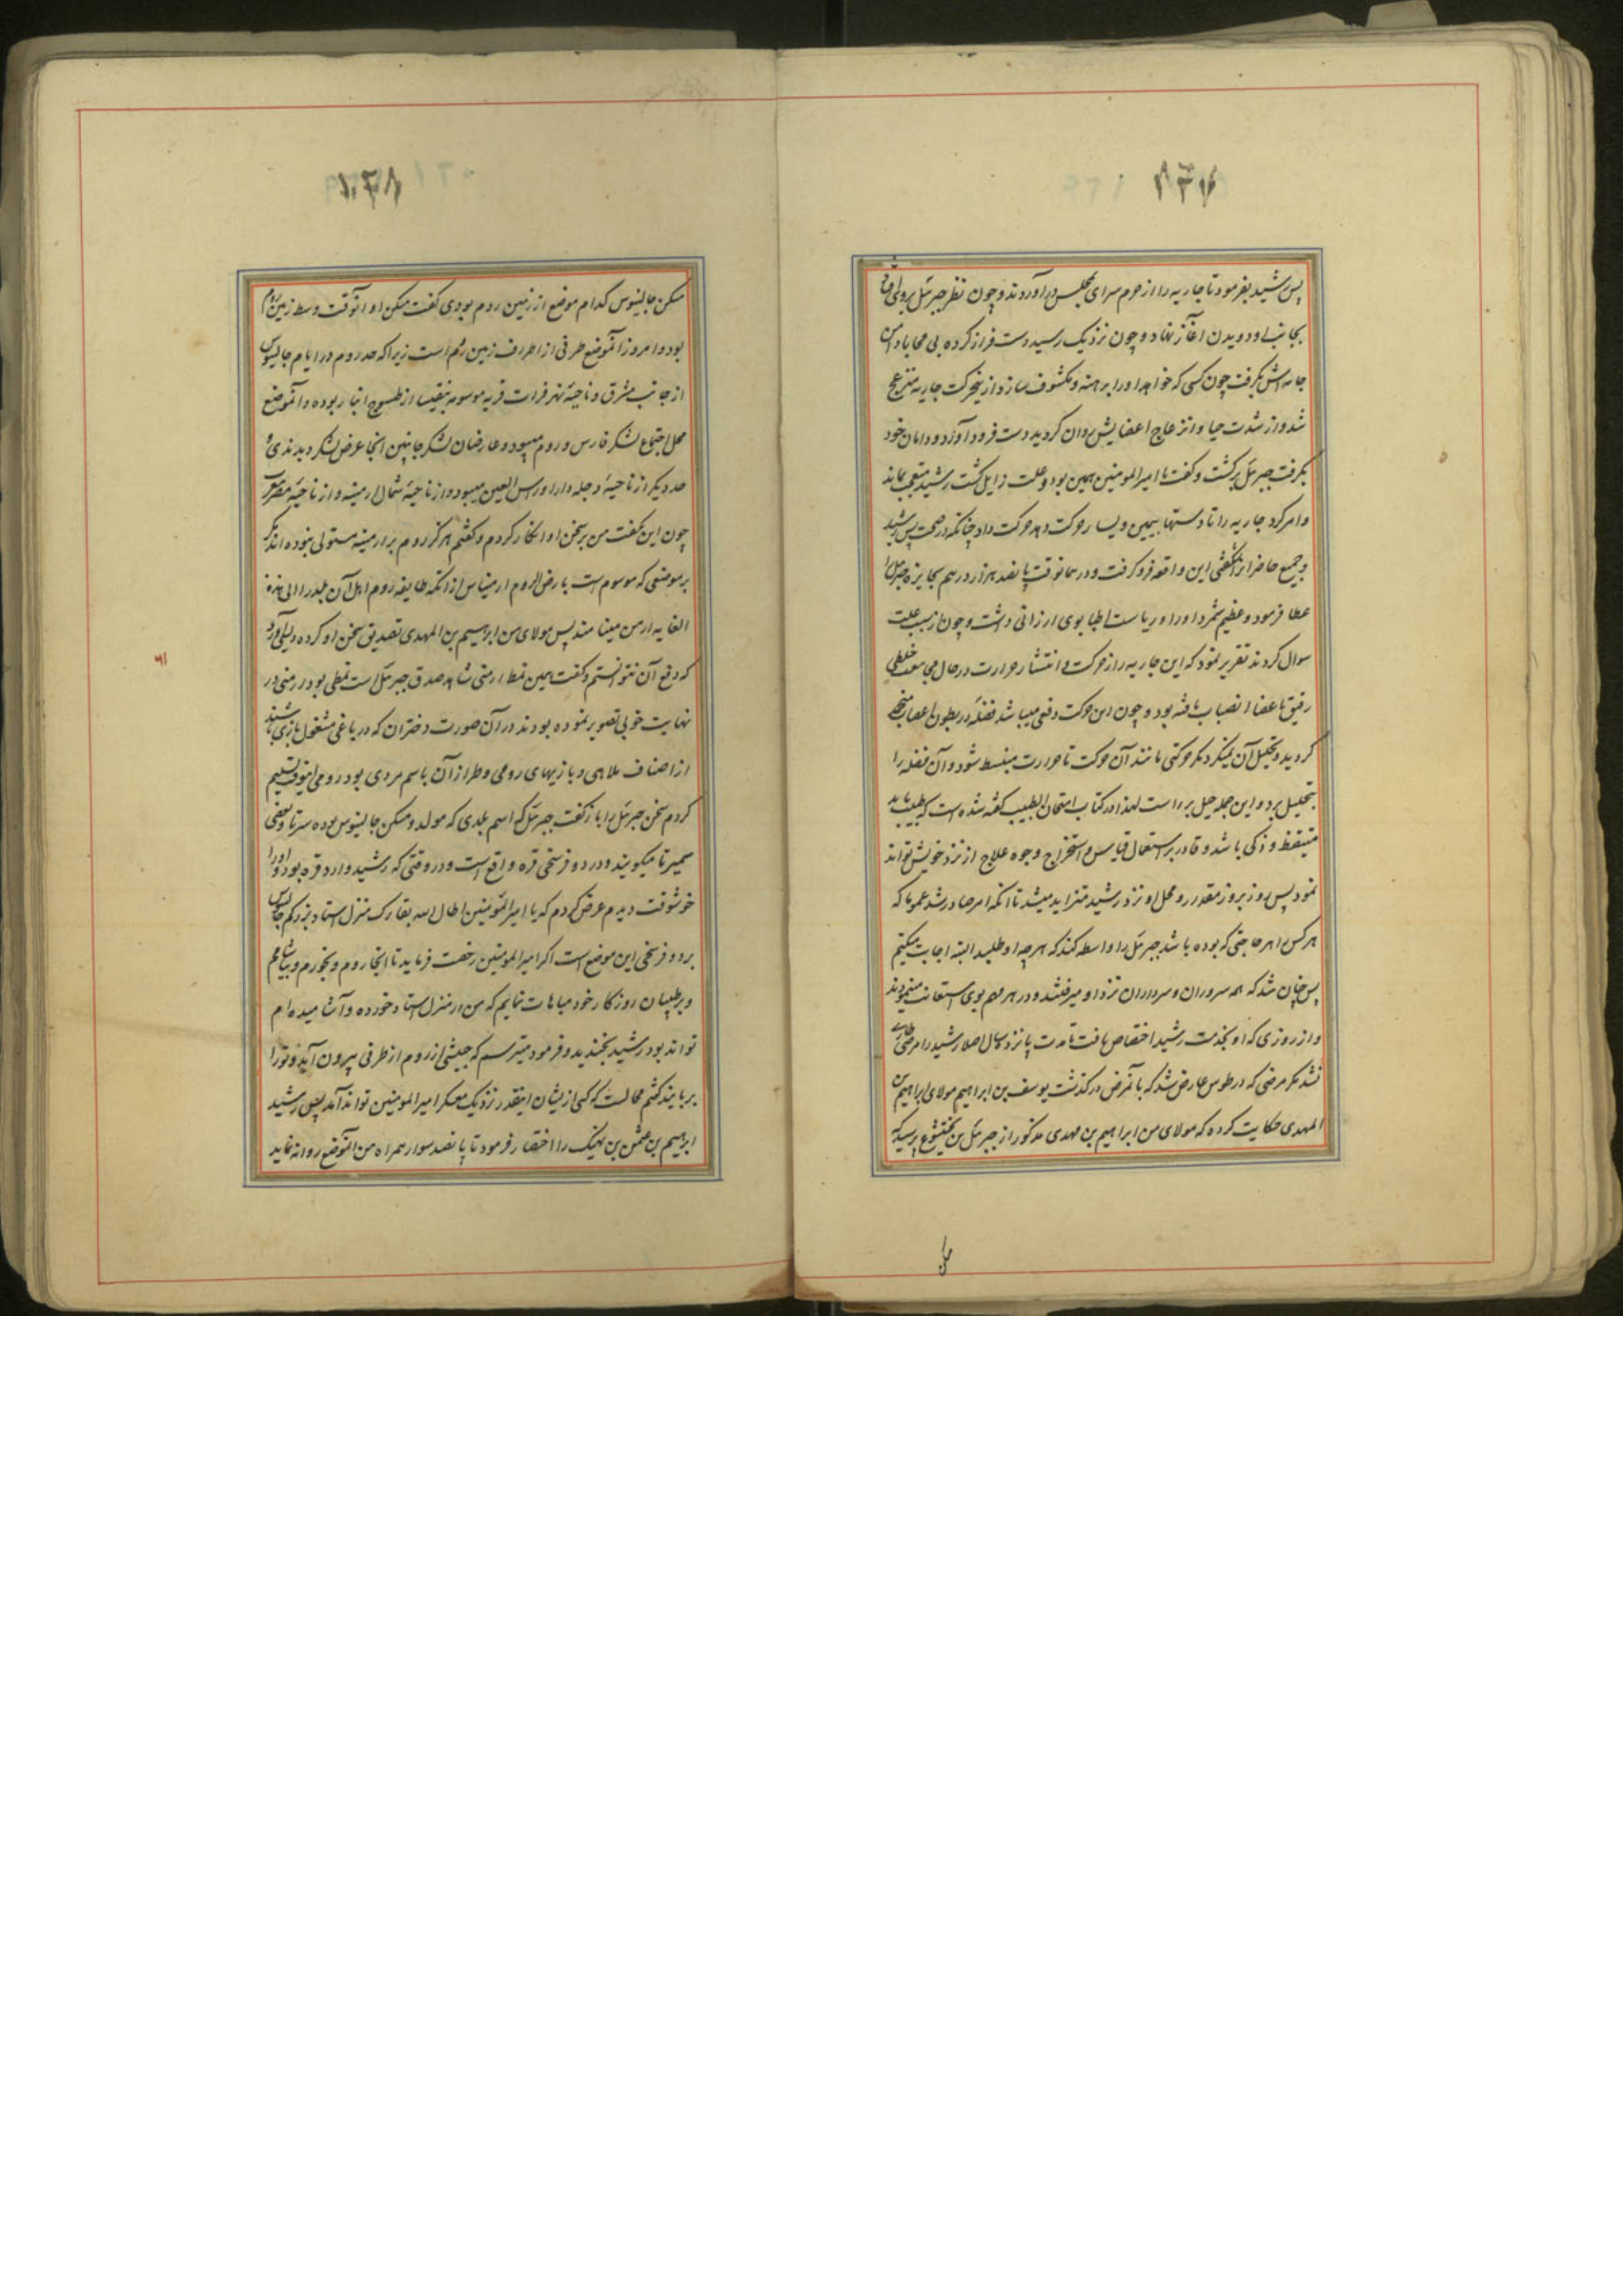 پس رشید بفرمود تا جاریه را از حرم سرای بمجلس درآوردند و چون نظر جبرئیل بروی افتاد
بجانب او دویدن آغاز نهاد و چون نزدیک رسید دست فراز کرده بی محابا دامن
جامه اش بگرفت چون کسی که خواهد او را برهنه و مکشوف سازد ازین حرکت جاریه منزعج
شد و از شدت حیا و انزعاج اعضایش روان گردید دست فرود آورد و دامان خود
بگرفت جبرئیل برگشت و گفت یا امیرالمومنین همین بود و علت زایل گشت رشید متعجب بماند
و امر کرد جاریه را تا دستها بیمین و یسار حرکت دهد حرکت داد چنانکه در صحت پس رشید
و جمیع حاضران را شگفتی این واقعه فرو گرفت و در همانوقت پانصد هزار درهم بجایزه جبرئیل را
عطا فرمود و عظیم شمرد او را و ریاست اطبا بوی ارزانی داشت و چون از سبب علت
سوال کردند تقریر نمود که این جاریه را از حرکت و انتشار حرارت در حال مجامعت خلطی
رقیق باعضا انصباب یافته بود و چون این حرکت دفعی میباشد فضله در بطون اعصاب منجمد
گردید و تحلیل آن نمیکرد مگر حرکتی مانند آن حرکت تا حرارت منبسط شود و آن فضله را
بتحلیل برد و این جمله حیل برء است لهذا در کتاب امتحان الطبیب گفته شده است که طبیب باید
متیقظ و ذکی باشد و قادر بر استعمال قیاس و استخراج وجوه علاج از نزد خویش تواند
نمود پس روز بروز مقدر و محل او نزد رشید متزاید میشد تا آنکه امر صادر شد عموما که
هر کس را هر حاجتی که بوده باشد جبرئیل را واسطه کند که هرچه او طلبد البته اجابت میکنم
پس چنان شد که همه سروران و سرداران نزد او میرفتند و در هر مهم بوی استعانت مینمودند
و از روزی که او بخدمت رشید اختصاص یافت تا مدت پانزده سال اصلا رشید را مرضی طاری
نشد مگر مرضی که در طوس عارض شد که بآنمرض درگذشت یوسف بن ابراهیم مولای ابراهیم بن
المهدی حکایت کرده که مولای من ابراهیم بن مهدی مذکور از جبرئیل بن بختیشوع پرسید که
مسکن جالینوس کدام موضع از زمین روم بودی گفت مسکن او آنوقت وسط زمین روم
بود و امروز آنموضع طرفی از اطراف زمین روم است زیرا که حد روم در ایام جالینوس
از جانب مشرق و ناحیهٔ نهر فرات قریه موسومه بنقیا از طسوج انبار بوده و آنموضع
محل اجتماع لشکر فارس و روم میبود و عارضان لشکر جانبین آنجا عرض لشکر دیدندی و
حد دیگر از ناحیهٔ دجله دارا و راس العین میبود و از ناحیهٔ شمال ارمینه و از ناحیهٔ مغرب مصر
چون این بگفت من بر سخن او انکار کردم و گفتم هرگز روم بر ارمینه مستولی نبوده اند مگر
بر موضعی که موسوم است بارض الروم ارمیناس از آنکه طایفه روم اهل آن بلد را الی هذه
الغایه ارمن مینامند پس مولای من ابراهیم بن المهدی تصدیق سخن او کرده دلیلی آورد
که دفع آن نتوانستم و گفت همین نمط ارمنی شاهد صدق جبرئیل است نمطی بود ارمنی در
نهایت خوبی تصویر نموده بودند در آن صورت دختران که در باغی مشغول بازی باشند
از اصناف ملاهی و بازیهای رومی و طراز آن باسم مردی بود رومی اینوقت تسلیم
کردم سخن جبرئیل را باز گفت جبرئیل که اسم بلدی که مولد و مسکن جالینوس بوده سرتا و بعضی
سمیرتا میگویند و در دو فرسخی قره واقع است و در وقتی که رشید وارد قره بود او را
خوشوقت دیدم عرض کردم که یا امیرالمومنین اطال الله بقاک منزل استاد بزرگم جالینوس
بر دو فرسخی این موضع است اگر امیرالمومنین رخصت فرماید تا آنجا روم و بخورم و بیاشامم
و بر طبیبان روزگار خود مباهات نمایم که من در منزل استاد خورده و آشامیده ام
تواند بود رشید بخندید و فرمود میترسم که جیشی از روم از طرفی بیرون آید و تو را
بربایند گفتم محالست که کسی از یشان اینقدر نزدیک معسکر امیرالمومنین تواند آمد پس رشید
ابراهیم بن عثمن بن نهیک را احضار فرمود تا پانصد سوار همراه من بآنموضع روانه نماید